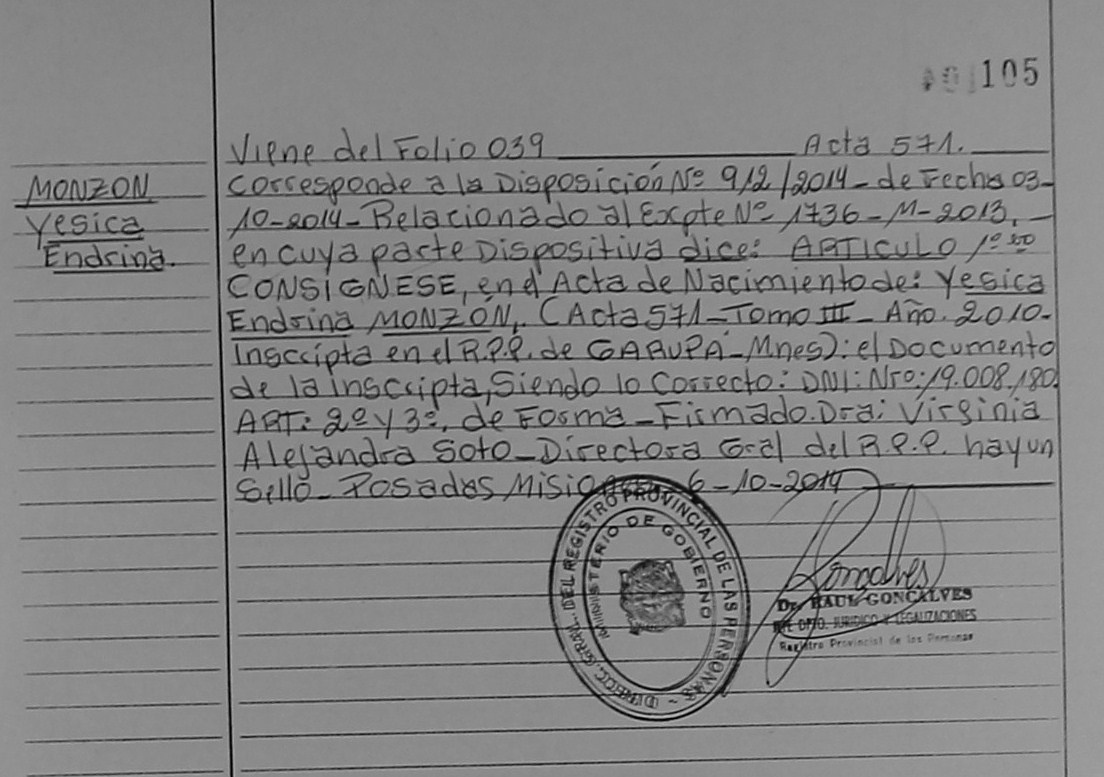 105
Viene del Folio 039 Acta 571.
MONZON
Yesica
Endrina.
Corresponde a la Disposición Nº 912/2014- de Fecha 03-
10-2014- Relacionado al Expte Nº 1736-M-2013,-
en cuya parte Dispositiva dice: ARTICULO 1º
CONSIGNESE, en el Acta de Nacimiento de: Yesica
Endrina MONZON, (Acta 571-Tomo III- Año. 2010-
Inscripta en el R.P.P. de GARUPA-Mnes): el Documento
de la inscripta, siendo lo Correcto: DNI: Nro: 19.008.180.
ART: 2º y 3º, de Forma-Firmado. Dra: Virginia
Alejandra Soto-Directora Gral del R.P.P. hay un
Sello- Posadas Misiones 6-10-2014
DIRECC. GRAL. DEL REGISTRO PROVINCIAL DE LAS PERSONAS
MINISTERIO DE GOBIERNO
Goncalves
Dr. RAUL GONCALVES
DPTO. JURIDICO Y LEGALIZACIONES
Registro Provincial de las Personas